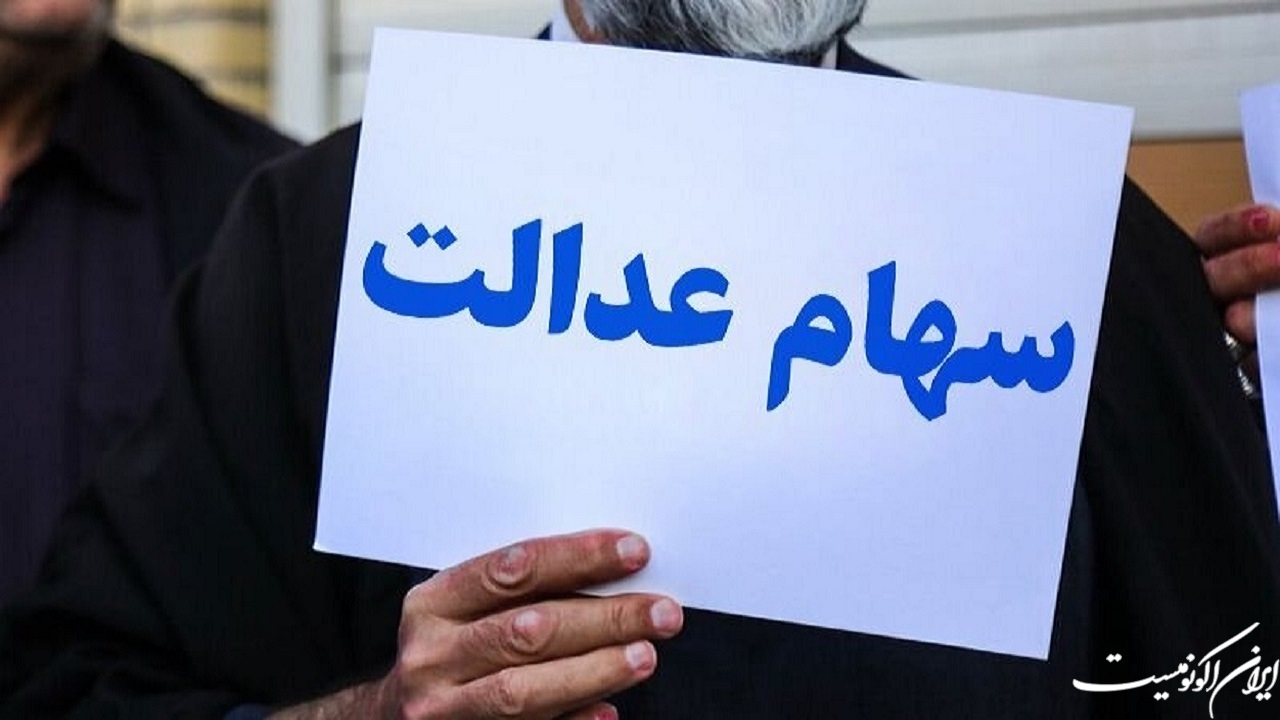 سهام عدالت
ایران اکونومیست